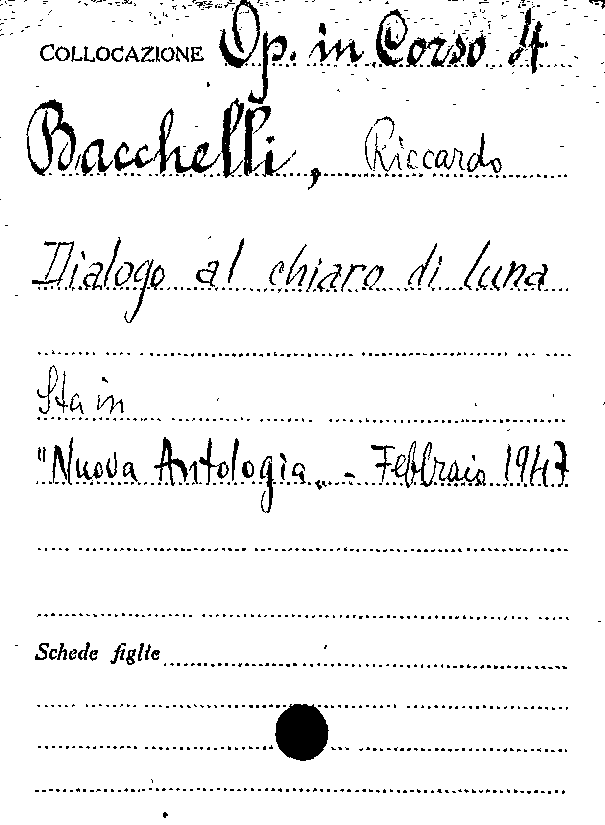 COLLOCAZIONE Op. in Corso 4
Bacchelli, Riccardo
Dialogo al chiaro di luna
Sta in
"Nuova Antologia„ - Febbraio 1947
Schede figlie